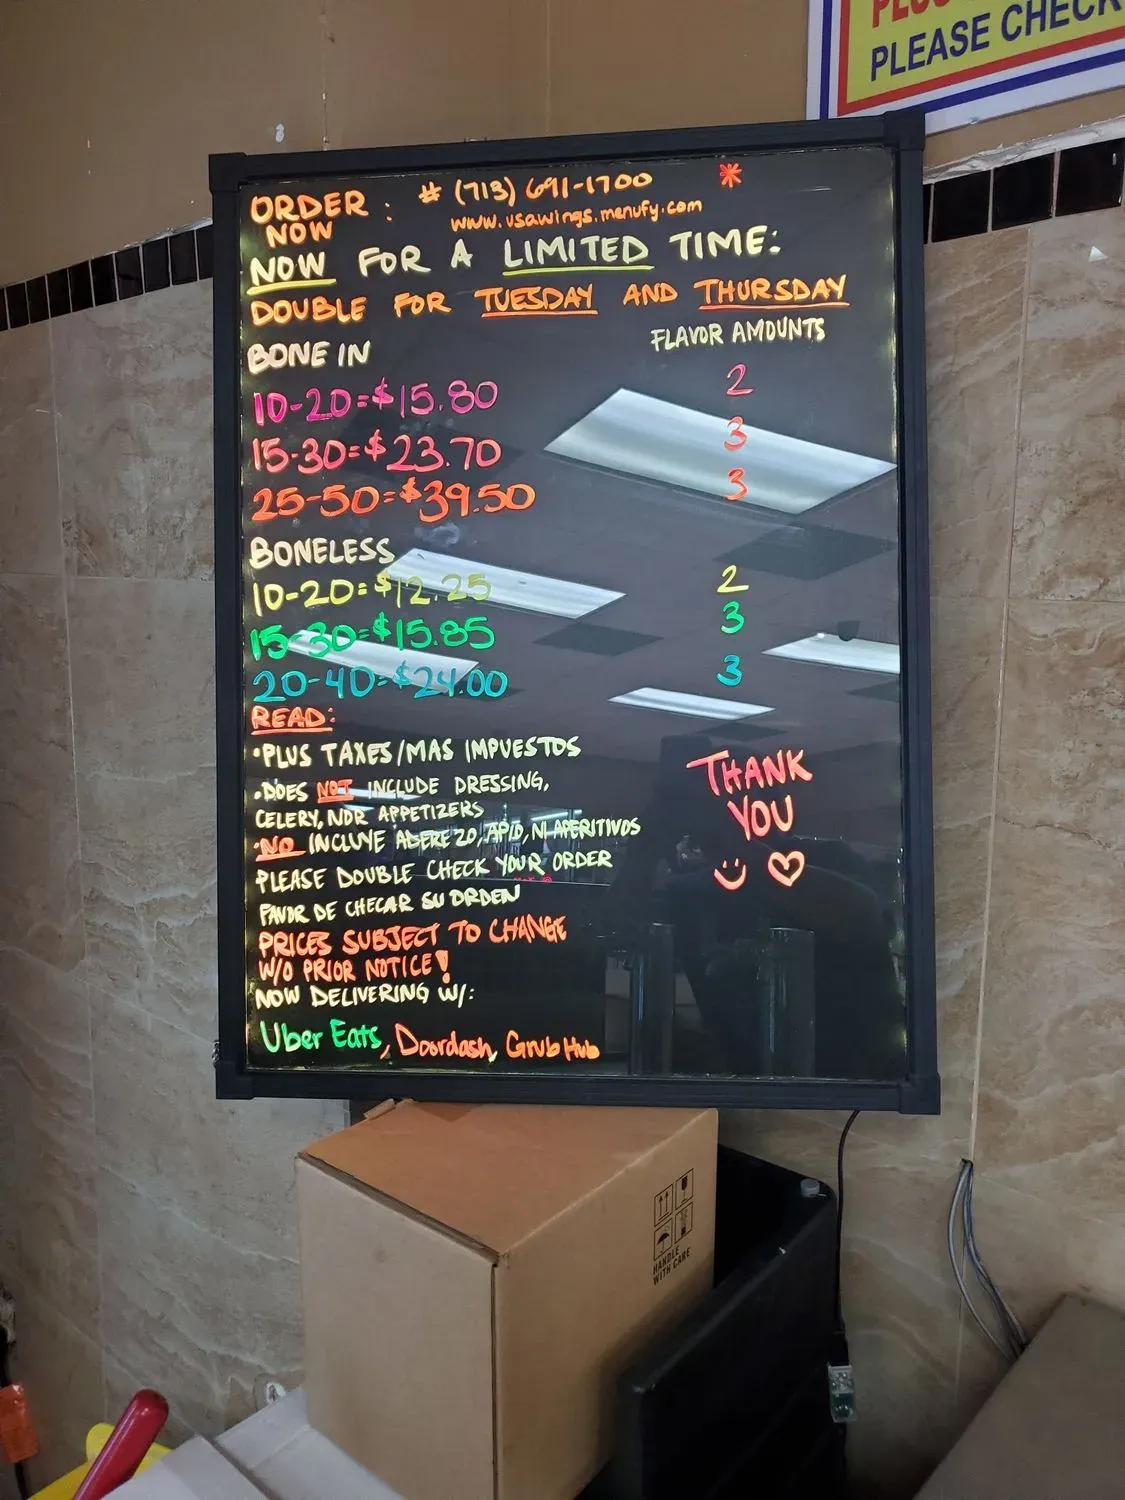 PLEASE CHECK
ORDER NOW : # (713) 691-1700 *
www.usawings.menufy.com
NOW FOR A LIMITED TIME:
DOUBLE FOR TUESDAY AND THURSDAY
BONE IN FLAVOR AMOUNTS
10-20=$15.80 2
15-30=$23.70 3
25-50=$39.50 3
BONELESS
10-20=$12.25 2
15-30=$15.85 3
20-40=$24.00 3
READ:
•PLUS TAXES/MAS IMPUESTOS
•DOES NOT INCLUDE DRESSING,
CELERY, NOR APPETIZERS
•NO INCLUYE ADEREZO, APIO, NI APERITIVOS
PLEASE DOUBLE CHECK YOUR ORDER
FAVOR DE CHECAR SU ORDEN
PRICES SUBJECT TO CHANGE
W/O PRIOR NOTICE!
NOW DELIVERING W/:
Uber Eats, Doordash, GrubHub
THANK
YOU
HANDLE
WITH CARE